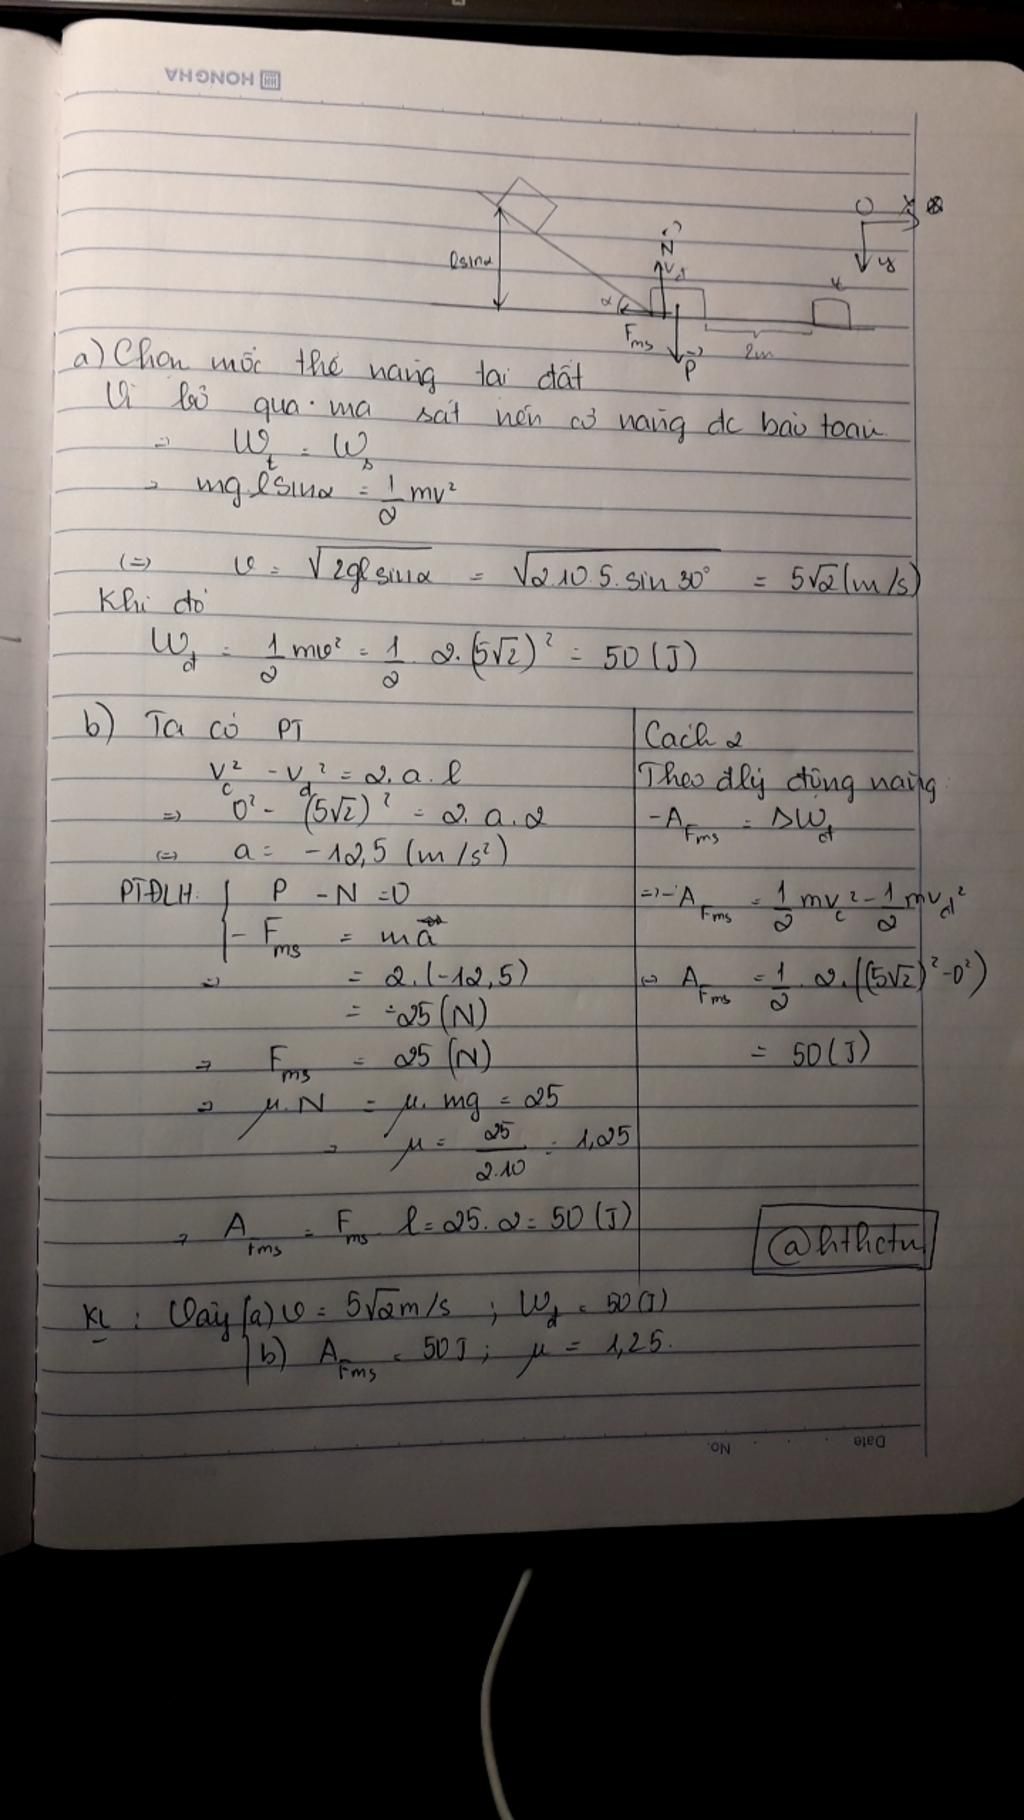 HONGHA
O x
y
lsinα
N
v_đ
α
F_ms
P
2m
a) Chọn mốc thế năng tại đất
Vì bỏ qua ma sát nên cơ năng đc bảo toàn
=> W_t = W_s
=> mglsinα = 1/2 mv²
<=> v = √2glsinα = √2.10.5.sin30° = 5√2 (m/s)
Khi đó
W_đ = 1/2 mv² = 1/2 . 2.(5√2)² = 50 (J)
b) Ta có PT
v_c² - v_đ² = 2.a.l
=> 0² - (5√2)² = 2.a.2
<=> a = -12,5 (m/s²)
PTĐLH: { P - N = 0
- F_ms = ma
=> = 2.(-12,5)
= -25 (N)
=> F_ms = 25 (N)
=> μ.N = μ.mg = 25
=> μ = 25/2.10 = 1,25
=> A_Fms = F_ms l = 25.2 = 50 (J)
Cách 2
Theo đlý động năng
-A_Fms = ΔW_đ
=> -A_Fms = 1/2 mv_c² - 1/2 mv_đ²
<=> A_Fms = 1/2 . 2.((5√2)² - 0²)
= 50 (J)
@hthctu
KL : Vậy (a) v = 5√2 m/s ; W_đ = 50 (J)
b) A_Fms = 50J ; μ = 1,25.
Date . . No.